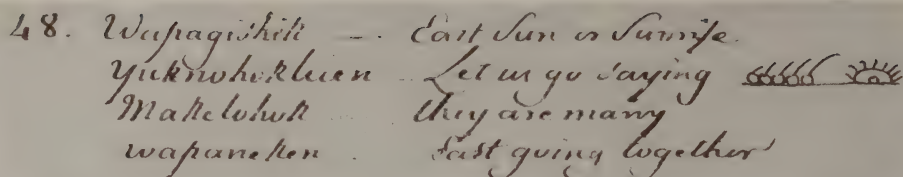 48. Wapagishik — East Sun or Sunrise.
Yuknohokluen Let us go saying
Makeluhuk they are many
wapaneken . East going together